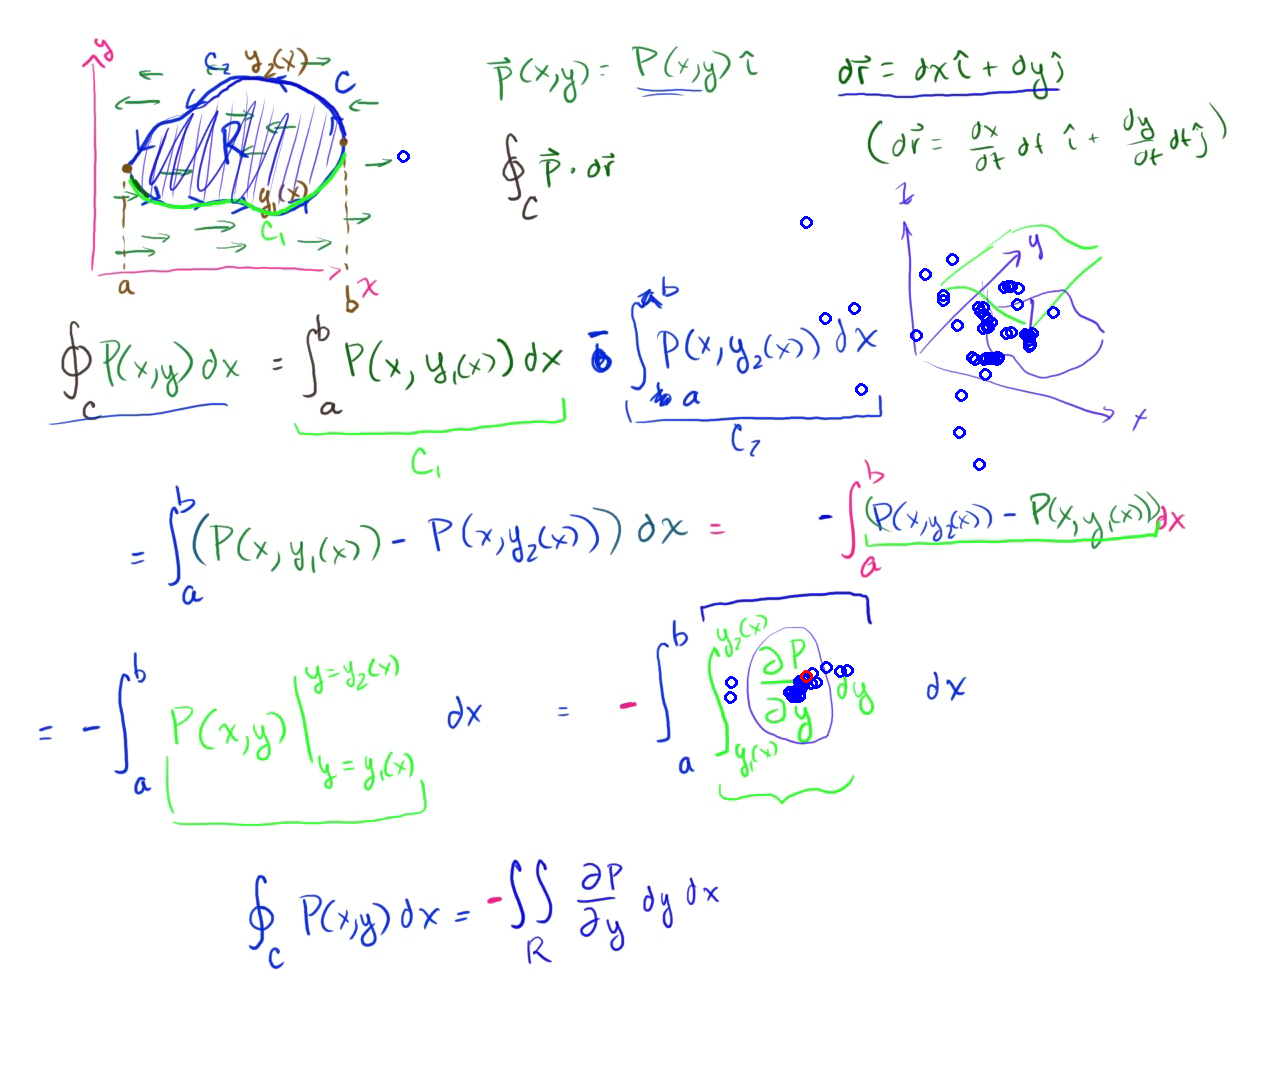 y
C₂ y₂(x)
C
R
y₁(x)
C₁
a b x
P⃗(x,y) = P(x,y) î
dr⃗ = dx î + dy ĵ
(dr⃗ = dx/dt dt î + dy/dt dt ĵ)
∮_C P⃗ · dr⃗
z
y
x
∮_C P(x,y) dx = ∫_a^b P(x, y₁(x)) dx - ∫_a^b P(x, y₂(x)) dx
C₁ C₂
= ∫_a^b (P(x, y₁(x)) - P(x, y₂(x))) dx = - ∫_a^b (P(x, y₂(x)) - P(x, y₁(x))) dx
= - ∫_a^b P(x,y) |_{y = y₁(x)}^{y = y₂(x)} dx = - ∫_a^b ∫_{y₁(x)}^{y₂(x)} ∂P/∂y dy dx
∮_C P(x,y) dx = - ∬_R ∂P/∂y dy dx